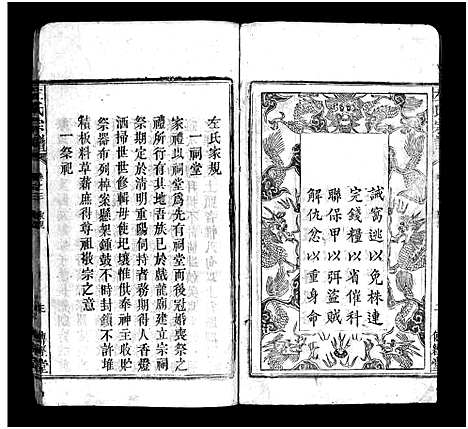 誡窩逃以免株連
完錢糧以省催科
聯保甲以弭盜賊
解仇忿以重身命
左氏家規
一祠堂
家禮以祠堂為先有祠堂而後冠婚喪祭之
禮所行有其地吾族於戲龍廟建立宗祠
祭期定於清明重陽伺持者務期得人香燈
洒掃世世修輯毋使圮壞惟供奉神主收貯
祭器布列棹案懸架鍾鼓不時封鎖不許堆
積板料草藉庶得尊祖敬宗之意
一祭祀